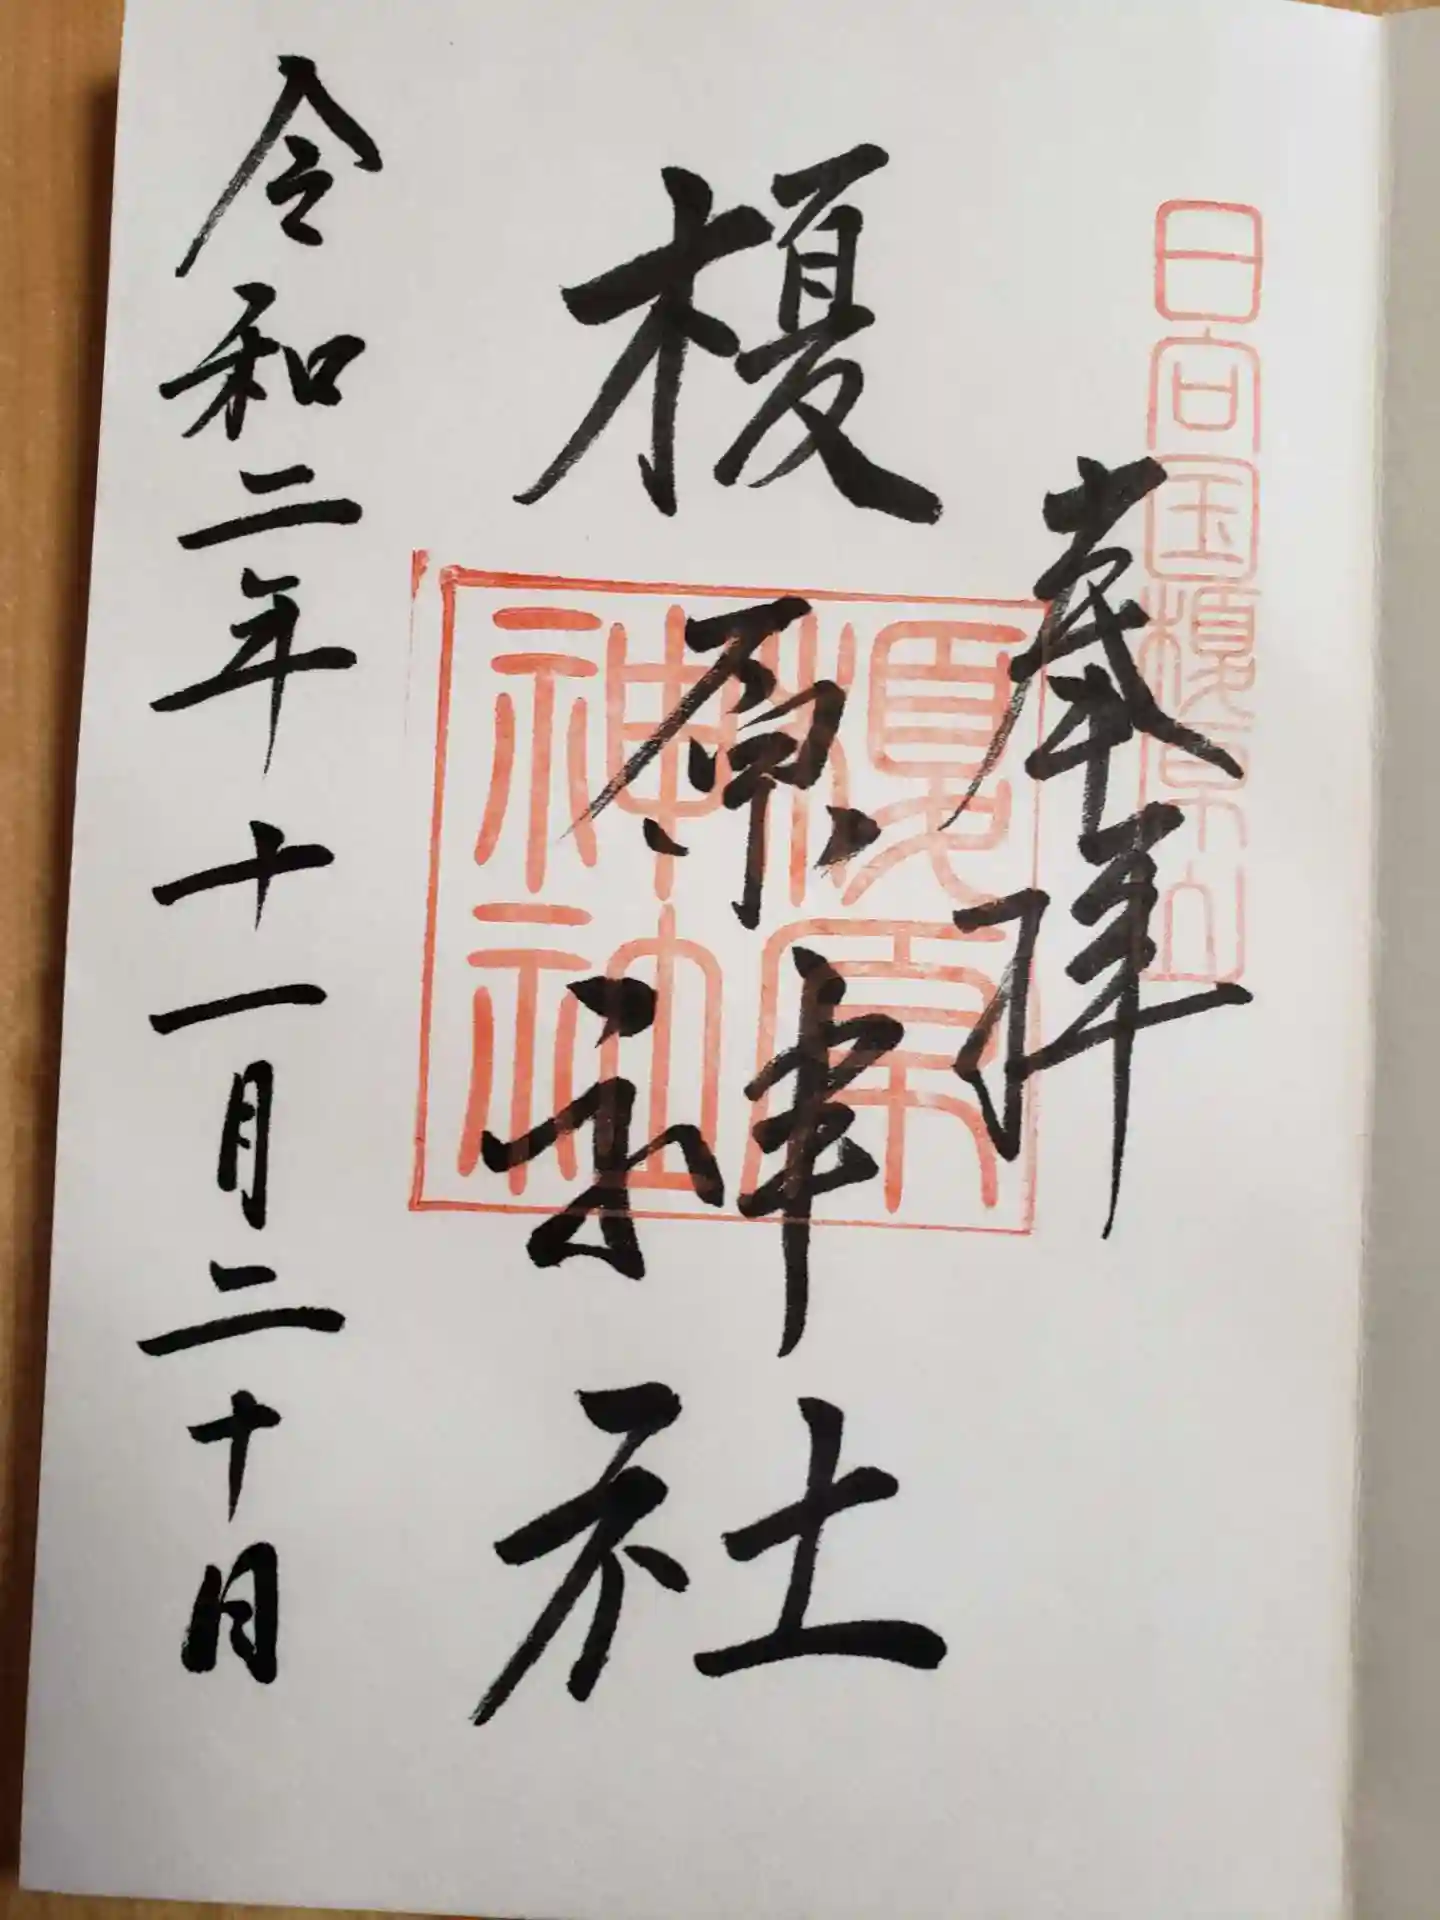 日向国榎原山
奉拝
榎原神社
榎原神社
令和二年十一月二十日